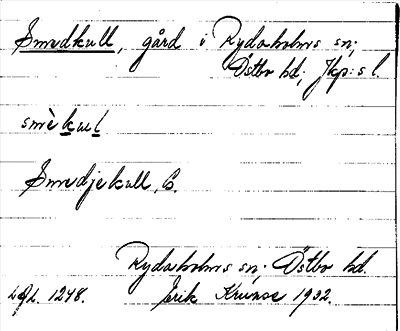 Smedkull, gård i Rydaholms sn;
Östbo hd; Jkp:s l.
smèkul
Smedjekull, G.
Rydaholms sn; Östbo hd.
1248. Erik 1932.